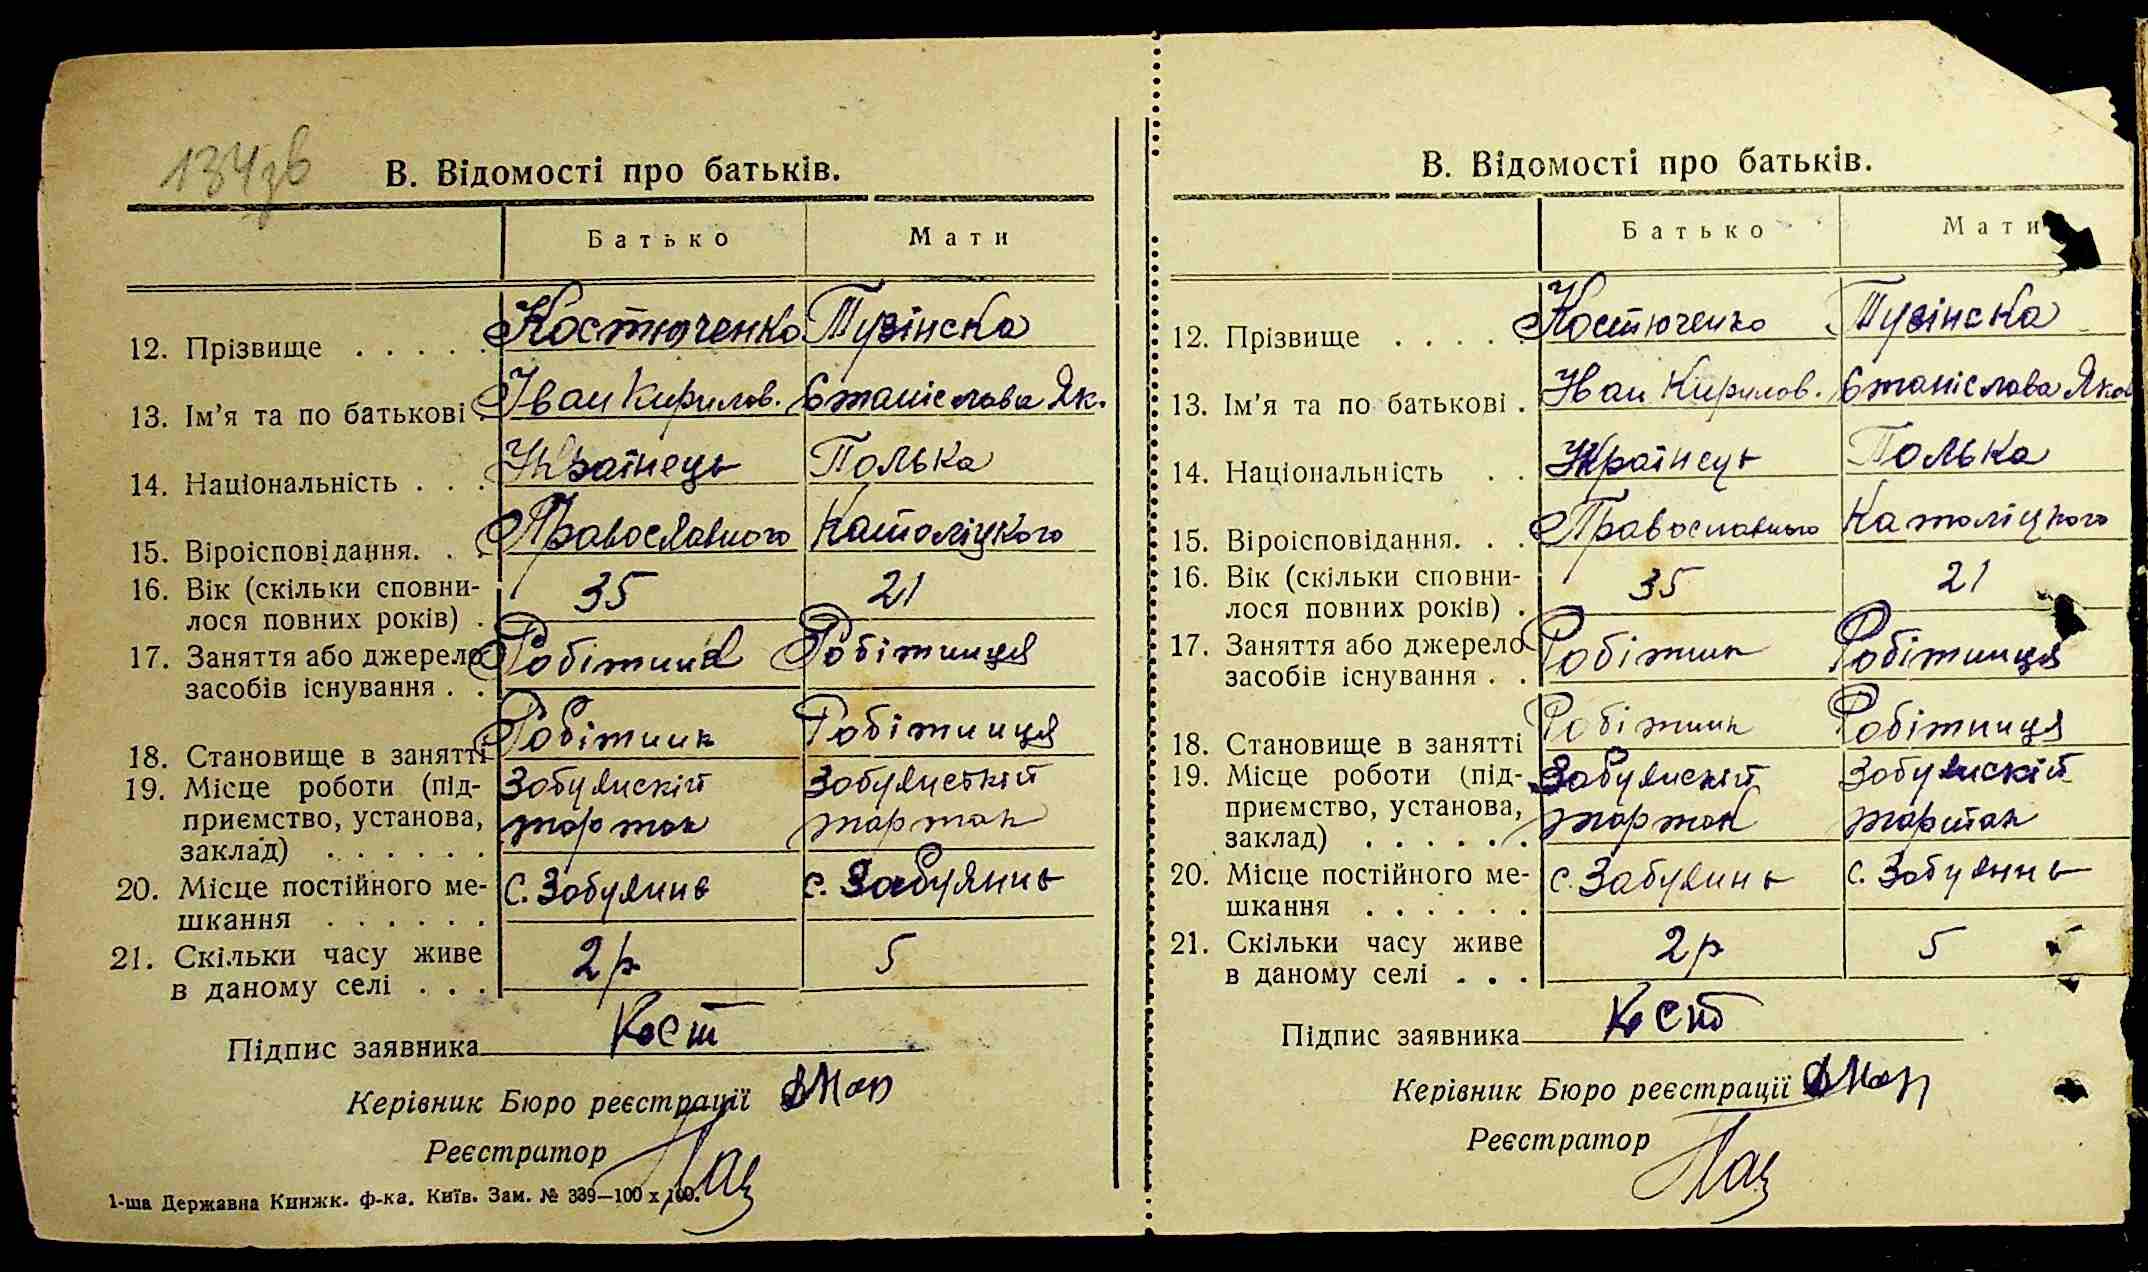 134зв
В. Відомості про батьків.
Батько Мати
12. Прізвище . . . . . Костюченко Тузінска
13. Ім'я та по батькові . Іван Кирилов. Станіслава Як.
14. Національність . . . Українець Полька
15. Віроісповідання. . . Православного Католіцкого
16. Вік (скільки сповни-
лося повних років) . 35 21
17. Заняття або джерело
засобів існування . . Робітник Робітниця
18. Становище в занятті Робітник Робітниця
19. Місце роботи (під- Забуянскій Забуянскій
приємство, установа, тартак тартак
заклад) . . . . . .
20. Місце постійного ме- с. Забуянь с. Забуянь
шкання . . . . . .
21. Скільки часу живе 2 р 5
в даному селі . . .
Підпис заявника Кост
Керівник Бюро реєстрації
Реєстратор
1-ша Державна Кинжк. ф-ка. Київ. Зам. № 339—100 x 100.
В. Відомості про батьків.
Батько Мати
12. Прізвище . . . . . Костюченко Тузінска
13. Ім'я та по батькові . Іван Кирилов. Станіслава Яков
14. Національність . . Українець Полька
15. Віроісповідання. . . Православного Католіцкого
16. Вік (скільки сповни-
лося повних років) . 35 21
17. Заняття або джерело
засобів існування . . Робітник Робітниця
18. Становище в занятті Робітник Робітниця
19. Місце роботи (під- Забуянскій Забуянскій
приємство, установа, тартак тартак
заклад) . . . . . .
20. Місце постійного ме- с. Забуянь с. Забуянь
шкання . . . . . .
21. Скільки часу живе 2 р 5
в даному селі . . .
Підпис заявника Кост
Керівник Бюро реєстрації
Реєстратор